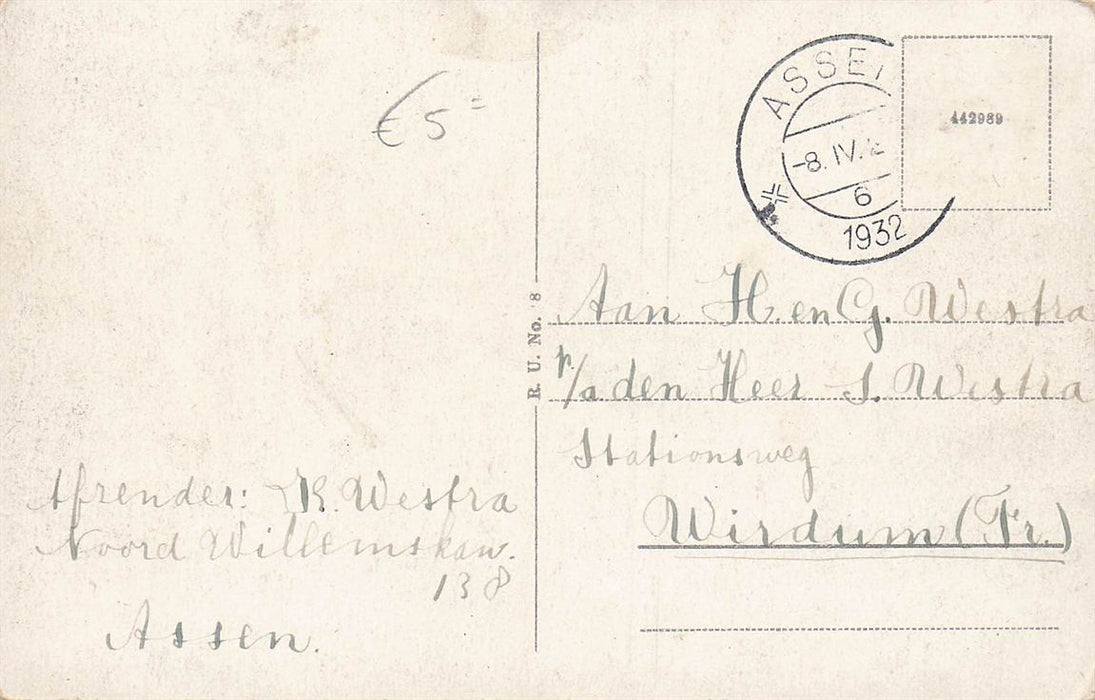 € 5 =
ASSEN
-8.IV.
6
1932
442989
R. U. No. 8
Aan H. en Cj. Westra
p/a den Heer S. Westra
Stationsweg
Wirdum (Fr.)
Afzender: K. Westra
Noord Willemskan.
138
Assen.